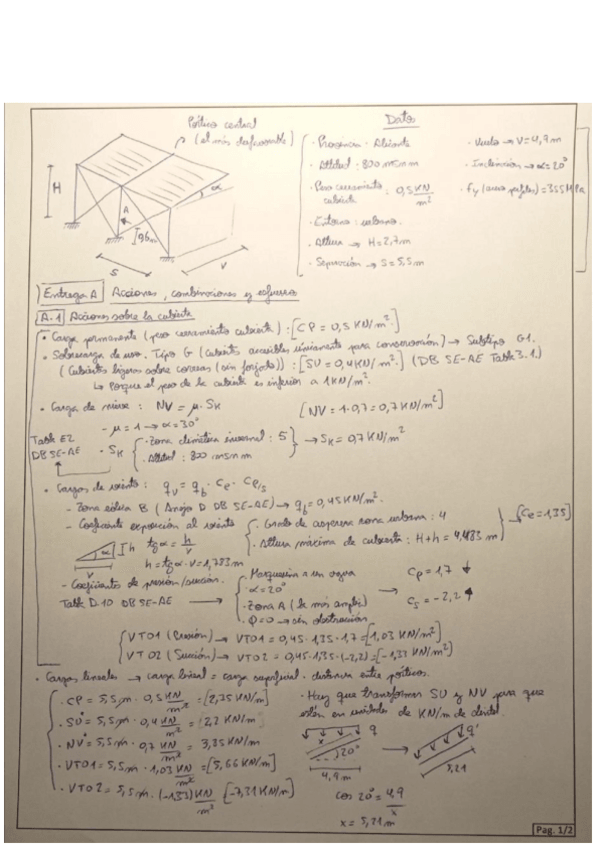 Pórtico central
(el más desfavorable)
Datos
· Provincia: Alicante
· Altitud: 800 msnm
· Peso cerramiento cubierta: 0,5 KN/m²
· Entorno: urbano.
· Altura → H=2,7m
· Separación → S=5,5m
· Vuelo → V=4,9m
· Inclinación → α=20°
· Fy (acero perfiles) = 355 MPa
H
A
α
S
V
Entrega A Acciones, combinaciones y esfuerzos
A.1 Acciones sobre la cubierta
· Carga permanente (peso cerramiento cubierta): [CP = 0,5 KN/m²]
· Sobrecarga de uso. Tipo G (Cubierta accesibles únicamente para conservación) → Subtipo G1.
(Cubierta ligeras sobre correas (sin forjado)): [SU = 0,4 KN/m².] (DB SE-AE Tabla 3.1)
↳ Porque el peso de la cubierta es inferior a 1 KN/m².
· Carga de nieve: NV = μ · Sk
[NV = 1 · 0,7 = 0,7 KN/m²]
- μ = 1 → α = 30°
Tabla E2
DB SE-AE
· Sk
· Zona climática invernal: 5
· Altitud: 800 msnm
→ Sk = 0,7 KN/m²
· Cargas de viento: qv = qb · Ce · Cp/s
- Zona eólica B (Anejo D DB SE-AE) → qb = 0,45 KN/m².
- Coeficiente exposición al viento
· Grado de aspereza zona urbana: 4
· Altura máxima de cubierta: H+h = 4,483 m
→ [Ce = 1,35]
α
h
V
tgα = h/v
h = tgα · v = 1,783m
- Coeficientes de presión/succión.
Tabla D.10 DB SE-AE →
· Marquesina a un agua
· α = 20°
· Zona A (la más amplia)
· Φ = 0 → sin obstrucción
Cp = 1,7 ↓
Cs = -2,2 ↑
VT01 (Presión) → VT01 = 0,45 · 1,35 · 1,7 = [1,03 KN/m²]
VT02 (Succión) → VT02 = 0,45 · 1,35 · (-2,2) = [-1,33 KN/m²]
· Cargas lineales → carga lineal = carga superficial · distancia entre pórticos.
· CP = 5,5m · 0,5 KN/m² = [2,75 KN/m]
· SU° = 5,5m · 0,4 KN/m² = 2,2 KN/m
· NV° = 5,5m · 0,7 KN/m² = 3,85 KN/m
· VT01 = 5,5m · 1,03 KN/m² = [5,66 KN/m]
· VT02 = 5,5m · (-1,33) KN/m² [-7,31 KN/m]
· Hay que transformar SU y NV para que
estén en unidades de KN/m de
q
20°
4,9m
q'
5,21
cos 20° = 4,9/x
x = 5,21m
Pag. 1/2